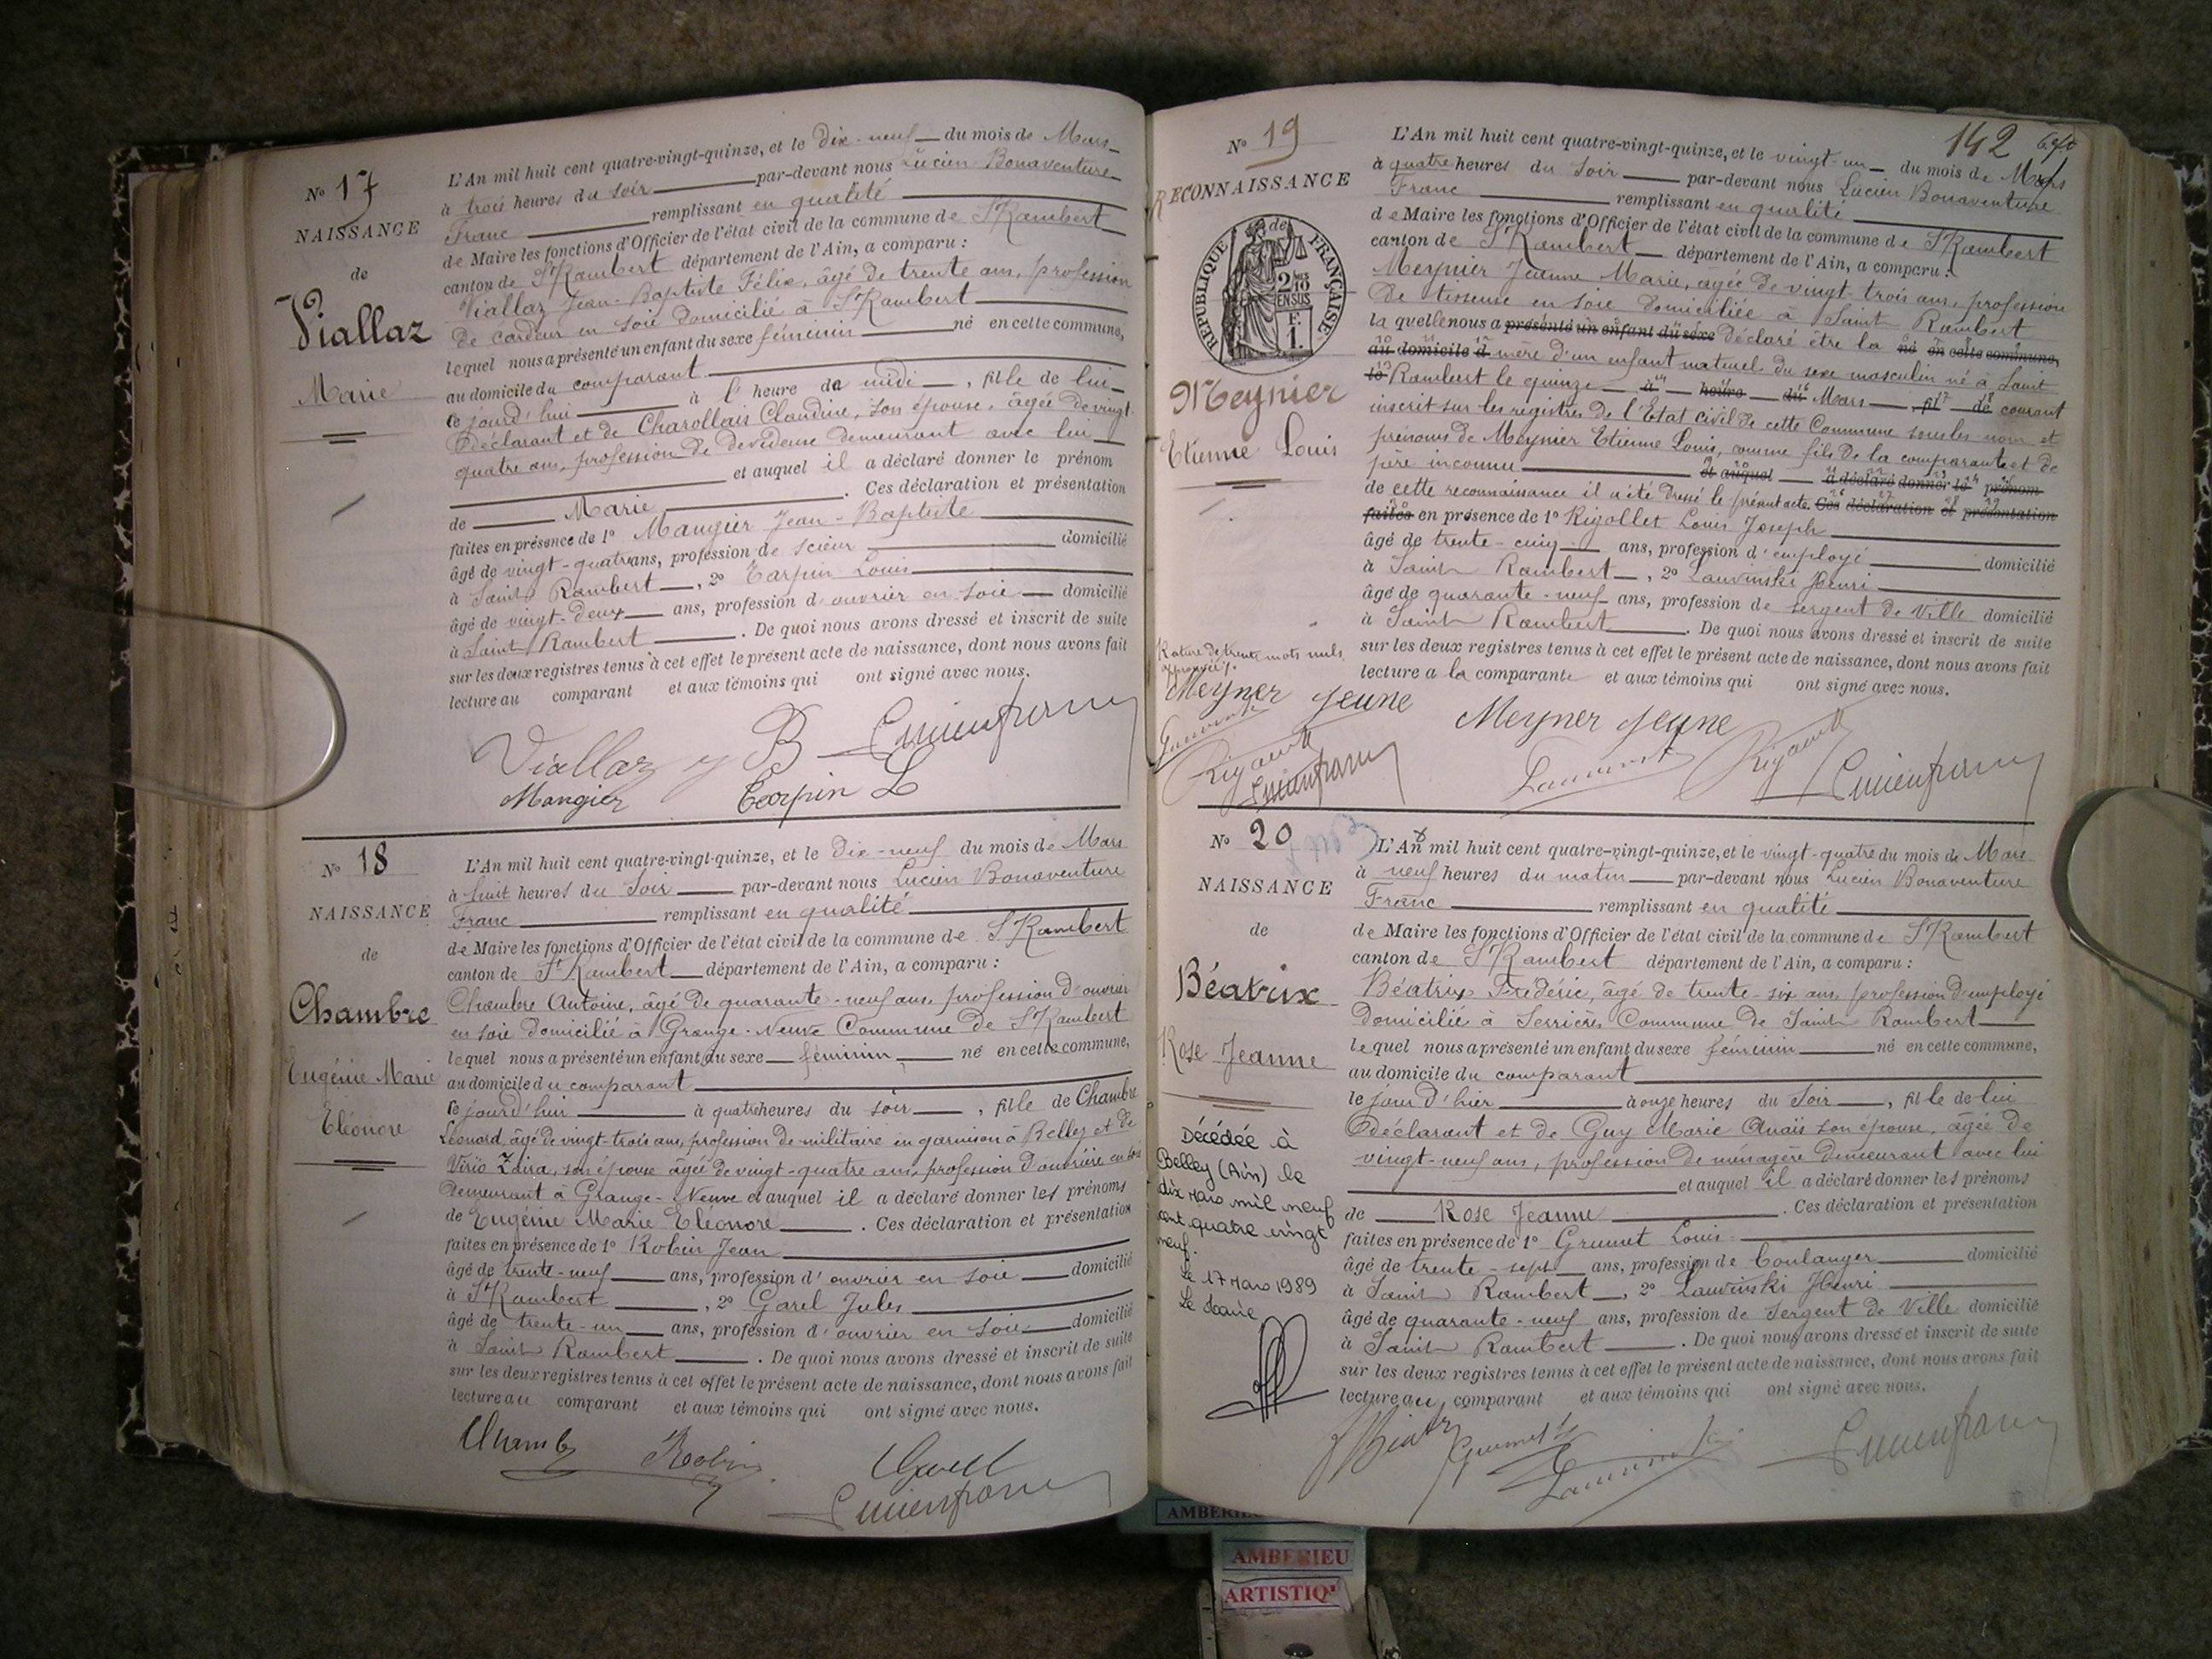 N° 17
NAISSANCE
de
Viallaz
Marie
L'An mil huit cent quatre-vingt-quinze, et le dix-neuf du mois de Mars
à trois heures du soir par-devant nous Lucien Bonaventure
Franc remplissant en qualité
de Maire les fonctions d'Officier de l'état civil de la commune de St Rambert
canton de St Rambert département de l'Ain, a comparu :
Viallaz Jean-Baptiste Félix, âgé de trente ans, profession
de cardeur en soie domicilié à St Rambert
lequel nous a présenté un enfant du sexe féminin né en cette commune,
au domicile du comparant
ce jourd'hui à l' heure de midi, fille de lui
déclarant et de Charollais Claudine, son épouse, âgée de vingt
quatre ans, profession de dévideuse demeurant avec lui
et auquel il a déclaré donner le prénom
de Marie. Ces déclaration et présentation
faites en présence de 1° Maugier Jean-Baptiste
âgé de vingt-quatre ans, profession de scieur domicilié
à Saint Rambert, 2° Tarpin Louis
âgé de vingt-deux ans, profession d'ouvrier en soie domicilié
à Saint Rambert. De quoi nous avons dressé et inscrit de suite
sur les deux registres tenus à cet effet le présent acte de naissance, dont nous avons fait
lecture au comparant et aux témoins qui ont signé avec nous.
Viallaz J B Lucien franc
Mangier Tarpin L
N° 18
NAISSANCE
de
Chambre
Eugénie Marie
Eléonore
L'An mil huit cent quatre-vingt-quinze, et le dix-neuf du mois de Mars
à huit heures du soir par-devant nous Lucien Bonaventure
Franc remplissant en qualité
de Maire les fonctions d'Officier de l'état civil de la commune de St Rambert
canton de St Rambert département de l'Ain, a comparu :
Chambre Antoine, âgé de quarante-neuf ans, profession d'ouvrier
en soie domicilié à Grange-Neuve Commune de St Rambert
lequel nous a présenté un enfant du sexe féminin né en cette commune,
au domicile du comparant
ce jourd'hui à quatre heures du soir, fille de Chambre
Léonard, âgé de vingt-trois ans, profession de militaire en garnison à Belley et de
Zaira, son épouse âgée de vingt-quatre ans, profession d'ouvrière en soie
demeurant à Grange-Neuve et auquel il a déclaré donner les prénoms
de Eugénie Marie Eléonore. Ces déclaration et présentation
faites en présence de 1° Robin Jean
âgé de trente-neuf ans, profession d'ouvrier en soie domicilié
à St Rambert, 2° Garel Jules
âgé de trente-un ans, profession d'ouvrier en soie domicilié
à Saint Rambert. De quoi nous avons dressé et inscrit de suite
sur les deux registres tenus à cet effet le présent acte de naissance, dont nous avons fait
lecture au comparant et aux témoins qui ont signé avec nous.
Chambre Robin Garell
Lucien franc
142
N° 19
RECONNAISSANCE
REPUBLIQUE FRANÇAISE
2/10 EN SUS
F. 1.
Meynier
Etienne Louis
L'An mil huit cent quatre-vingt-quinze, et le vingt-un du mois de Mars
à quatre heures du soir par-devant nous Lucien Bonaventure
Franc remplissant en qualité
de Maire les fonctions d'Officier de l'état civil de la commune de St Rambert
canton de St Rambert département de l'Ain, a comparu :
Meynier Jeanne Marie, âgée de vingt-trois ans, profession
de tisseuse en soie domiciliée à Saint Rambert
la quelle nous a présenté un enfant du sexe déclaré être la né en cette commune,
au domicile d mère d'un enfant naturel du sexe masculin né à Saint
le Rambert le quinze à heure du Mars, fil de courant
inscrit sur les registres de l'Etat civil de cette Commune sous les nom et
prénoms de Meynier Etienne Louis, comme fils de la comparante et de
père inconnu et auquel a déclaré donner le prénom
de cette reconnaissance il a été dressé le présent acte. Ces déclaration et présentation
faites en présence de 1° Rigollet Louis Joseph
âgé de trente-cinq ans, profession d'employé domicilié
à Saint Rambert, 2° Lauvinski Henri
âgé de quarante-neuf ans, profession de sergent de ville domicilié
à Saint Rambert. De quoi nous avons dressé et inscrit de suite
sur les deux registres tenus à cet effet le présent acte de naissance, dont nous avons fait
lecture a la comparante et aux témoins qui ont signé avec nous.
Rature de trente mots nuls
Meyner jeune
Meyner jeune
Lucien franc
Lucien franc
N° 20
NAISSANCE
de
Béatrix
Rose Jeanne
Décédée à
Belley (Ain) le
dix mars mil neuf
cent quatre vingt
neuf.
Le 17 mars 1989
Le Maire
L'An mil huit cent quatre-vingt-quinze, et le vingt-quatre du mois de Mars
à neuf heures du matin par-devant nous Lucien Bonaventure
Franc remplissant en qualité
de Maire les fonctions d'Officier de l'état civil de la commune de St Rambert
canton de St Rambert département de l'Ain, a comparu :
Béatrix Frédéric, âgé de trente-six ans, profession d'employé
domicilié à Serrières Commune de Saint Rambert
lequel nous a présenté un enfant du sexe féminin né en cette commune,
au domicile du comparant
le jour d'hier à onze heures du soir, fille de lui
déclarant et de Guy Marie Anaïs son épouse, âgée de
vingt-neuf ans, profession de ménagère demeurant avec lui
et auquel il a déclaré donner les prénoms
de Rose Jeanne. Ces déclaration et présentation
faites en présence de 1° Grumet Louis
âgé de trente-sept ans, profession de boulanger domicilié
à Saint Rambert, 2° Lauvinski Henri
âgé de quarante-neuf ans, profession de sergent de ville domicilié
à Saint Rambert. De quoi nous avons dressé et inscrit de suite
sur les deux registres tenus à cet effet le présent acte de naissance, dont nous avons fait
lecture au comparant et aux témoins qui ont signé avec nous.
Grumet
Lucien franc
AMBERIEU
AMBERIEU
ARTISTIQ